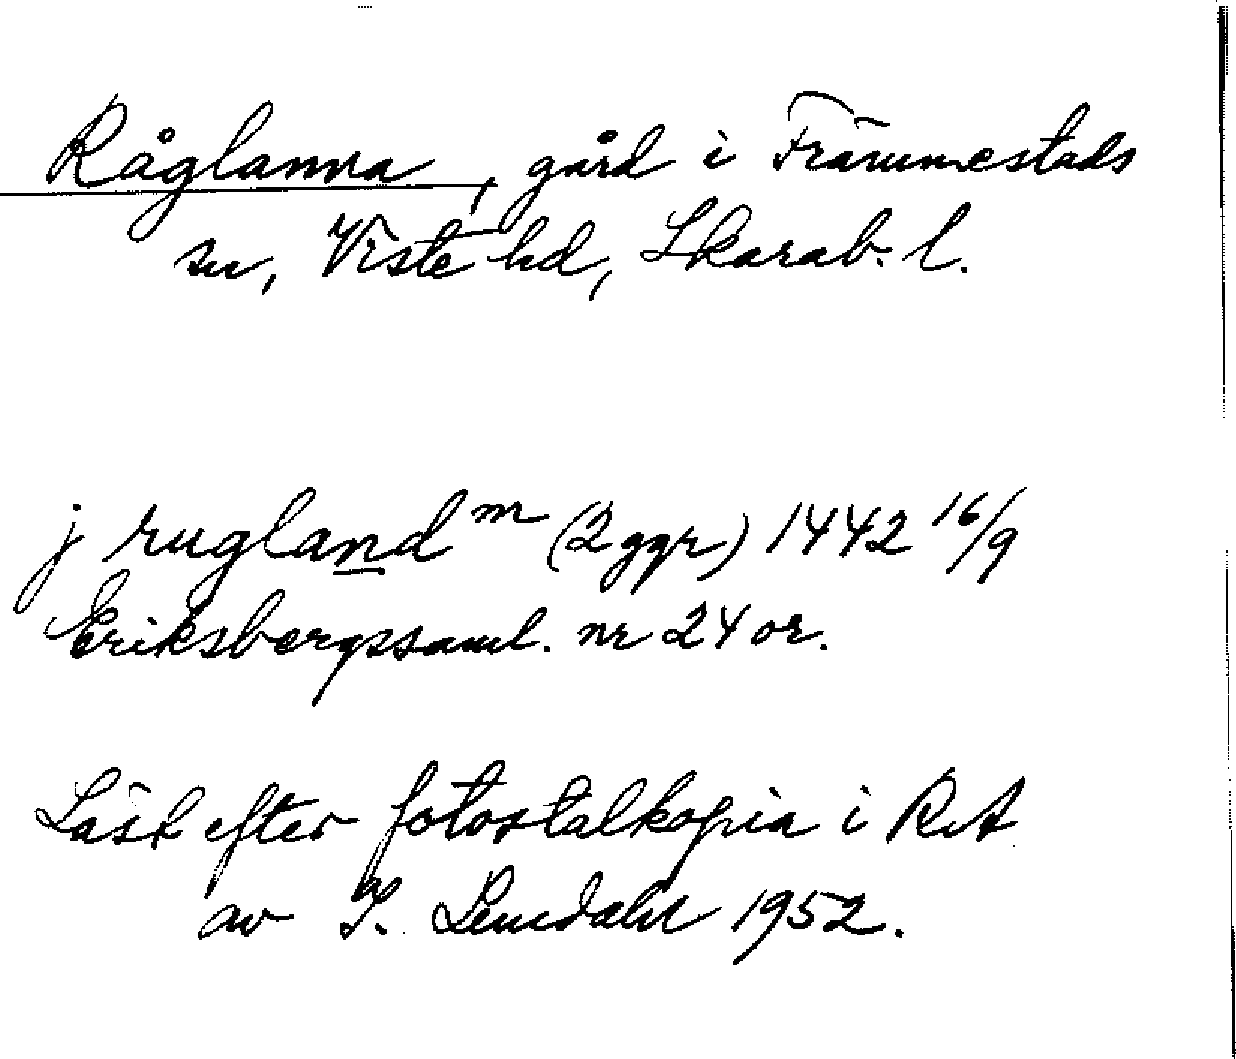 Råglanna, gård i Främmestads
sn, Viste hd, Skarab. l.
j rugland m (2 ggr) 1442 16/9
Eriksbergssaml. nr 24 or.
Läst efter fotostatkopia i RA
av I. Lundahl 1952.